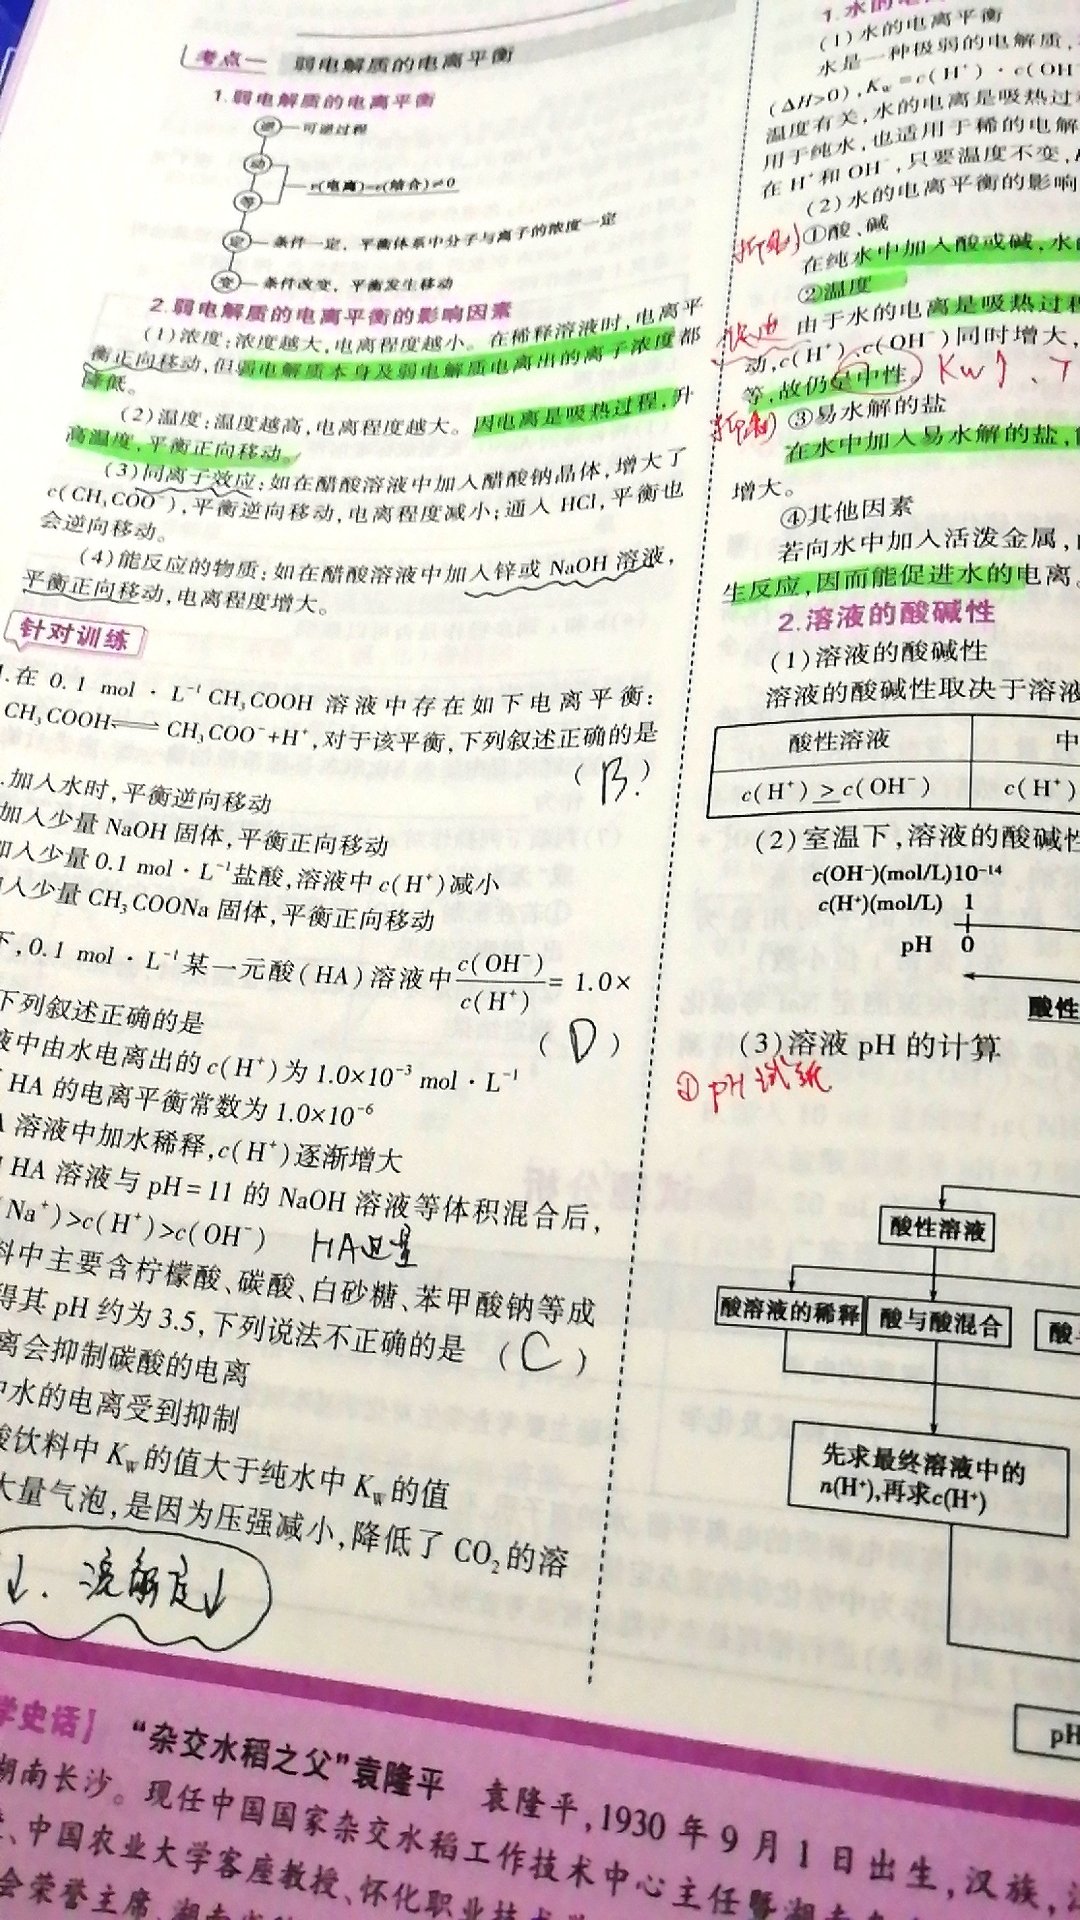 考点一 弱电解质的电离平衡
1.弱电解质的电离平衡
逆—可逆过程
动
等
v(电离)=v(结合)≠0
定—条件一定,平衡体系中分子与离子的浓度一定
变—条件改变,平衡发生移动
2.弱电解质的电离平衡的影响因素
(1)浓度:浓度越大,电离程度越小。在稀释溶液时,电离平
衡正向移动,但弱电解质本身及弱电解质电离出的离子浓度都
降低。
(2)温度:温度越高,电离程度越大。因电离是吸热过程,升
高温度,平衡正向移动。
(3)同离子效应:如在醋酸溶液中加入醋酸钠晶体,增大了
c(CH₃COO⁻),平衡逆向移动,电离程度减小;通入 HCl,平衡也
会逆向移动。
(4)能反应的物质:如在醋酸溶液中加入锌或 NaOH 溶液,
平衡正向移动,电离程度增大。
针对训练
1.在 0.1 mol·L⁻¹ CH₃COOH 溶液中存在如下电离平衡:
CH₃COOH⇌CH₃COO⁻+H⁺,对于该平衡,下列叙述正确的是
( B )
.加入水时,平衡逆向移动
加入少量 NaOH 固体,平衡正向移动
加入少量 0.1 mol·L⁻¹盐酸,溶液中 c(H⁺)减小
入少量 CH₃COONa 固体,平衡正向移动
下,0.1 mol·L⁻¹某一元酸(HA)溶液中 c(OH⁻)/c(H⁺) = 1.0×
下列叙述正确的是
( D )
液中由水电离出的 c(H⁺)为 1.0×10⁻³ mol·L⁻¹
HA 的电离平衡常数为 1.0×10⁻⁶
A 溶液中加水稀释,c(H⁺)逐渐增大
HA 溶液与 pH=11 的 NaOH 溶液等体积混合后,
(Na⁺)>c(H⁺)>c(OH⁻) HA过量
料中主要含柠檬酸、碳酸、白砂糖、苯甲酸钠等成
得其 pH 约为 3.5,下列说法不正确的是 ( C )
离会抑制碳酸的电离
中水的电离受到抑制
酸饮料中 Kw的值大于纯水中 Kw的值
大量气泡,是因为压强减小,降低了 CO₂的溶
↓.溶解度↓
1.水的电
(1)水的电离平衡
水是一种极弱的电解质,
(ΔH>0),Kw=c(H⁺)·c(OH
温度有关,水的电离是吸热过
用于纯水,也适用于稀的电解
在 H⁺和 OH⁻,只要温度不变,
(2)水的电离平衡的影响
抑制 ①酸、碱
在纯水中加入酸或碱,水
②温度
促进 由于水的电离是吸热过程
动,c(H⁺)、c(OH⁻)同时增大,
等,故仍呈中性。 Kw↑、T
抑制 ③易水解的盐
在水中加入易水解的盐,
增大。
④其他因素
若向水中加入活泼金属,
生反应,因而能促进水的电离。
2.溶液的酸碱性
(1)溶液的酸碱性
溶液的酸碱性取决于溶液
酸性溶液 中
c(H⁺)>c(OH⁻) c(H⁺)
(2)室温下,溶液的酸碱性
c(OH⁻)(mol/L)10⁻¹⁴
c(H⁺)(mol/L) 1
pH 0
酸性
(3)溶液 pH 的计算
①pH试纸
酸性溶液
酸溶液的稀释 酸与酸混合 酸
先求最终溶液中的
n(H⁺),再求c(H⁺)
pH
学史话】 “杂交水稻之父”袁隆平 袁隆平,1930 年 9 月 1 日出生,汉族,
湖南长沙。现任中国国家杂交水稻工作技术中心主任暨湖南
、中国农业大学客座教授、怀化职业技术学
会荣誉主席、湖南省